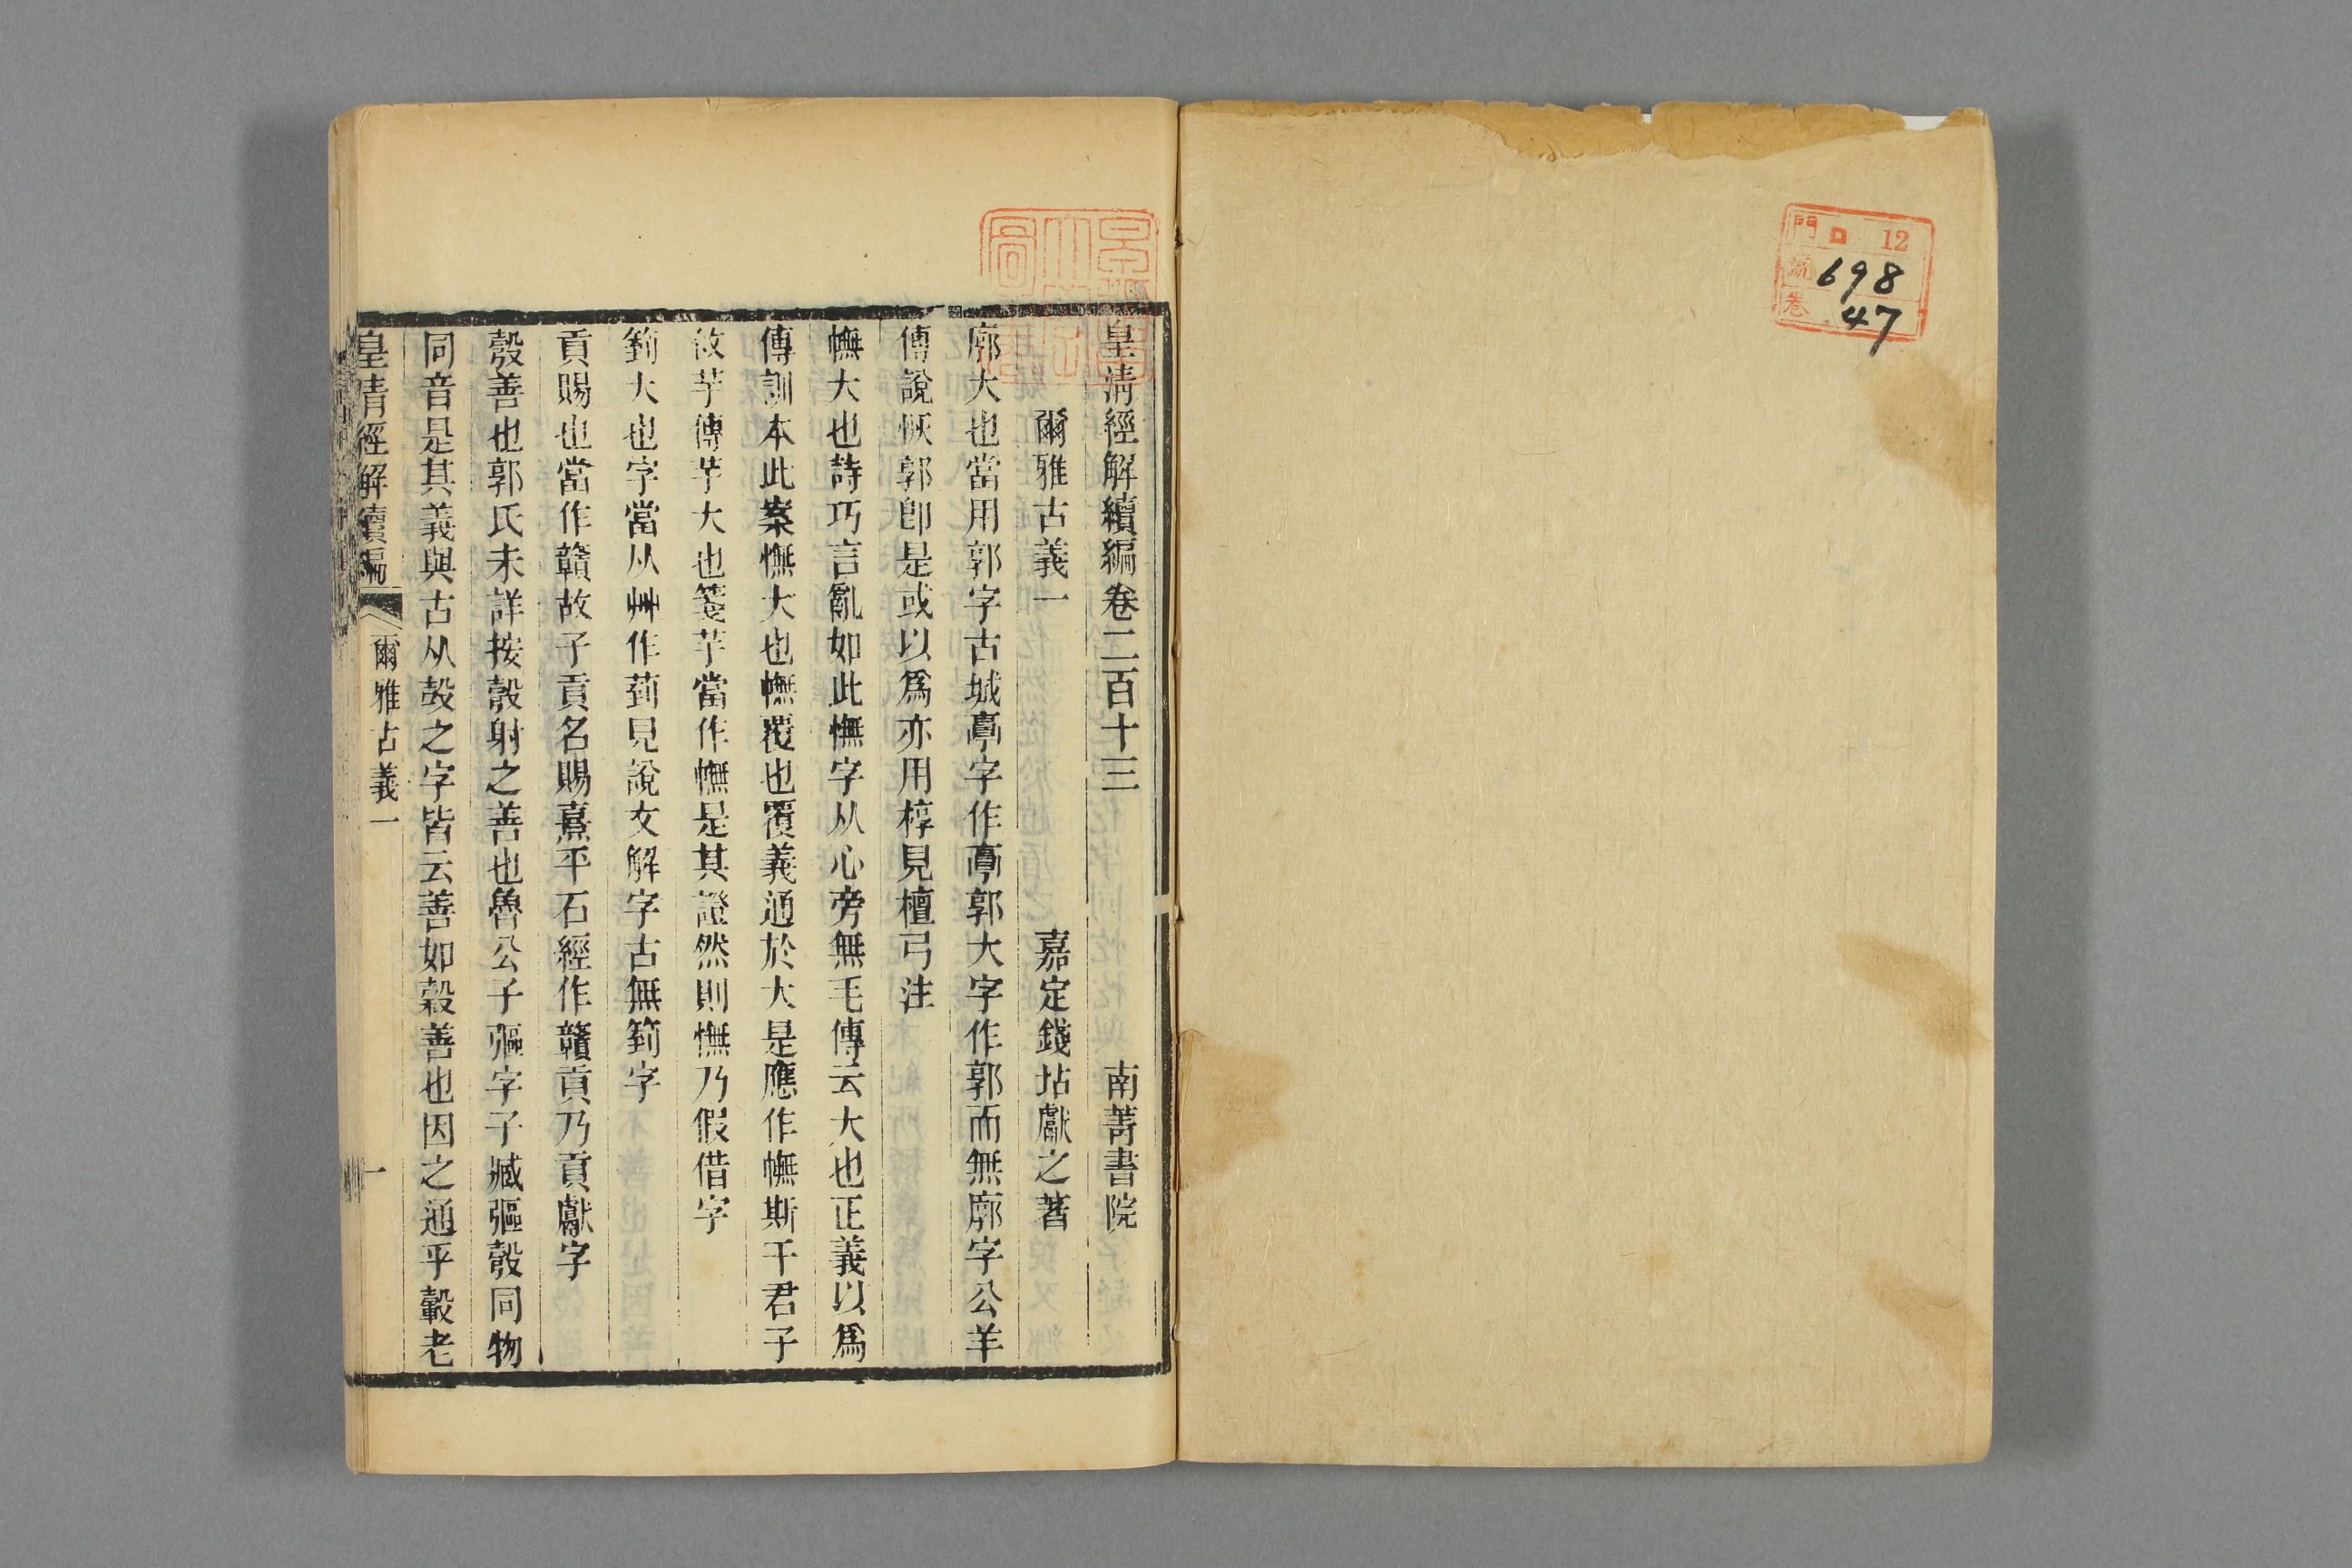 門 ロ 12
號 698
卷 47
皇清經解續編卷二百十三 南菁書院
爾雅古義一 嘉定錢坫獻之著
廓大也當用郭字古城𩫏字作𩫏郭大字作郭而無廓字公羊
傳說恢郭卽是或以爲亦用椁見檀弓注
幠大也詩巧言亂如此憮字从心旁無毛傳云大也正義以爲
傳訓本此案憮大也幠覆也覆義通於大是應作幠斯干君子
攸芋傳芋大也箋芋當作幠是其證然則憮乃假借字
箌大也字當从艸作菿見說文解字古無箌字
貢賜也當作贛故子貢名賜熹平石經作贛貢乃貢獻字
彀善也郭氏未詳按彀射之善也魯公子彄字子臧彄彀同物
同音是其義與古从㱿之字皆云善如穀善也因之通乎轂老
皇清經解續編 爾雅古義一 一